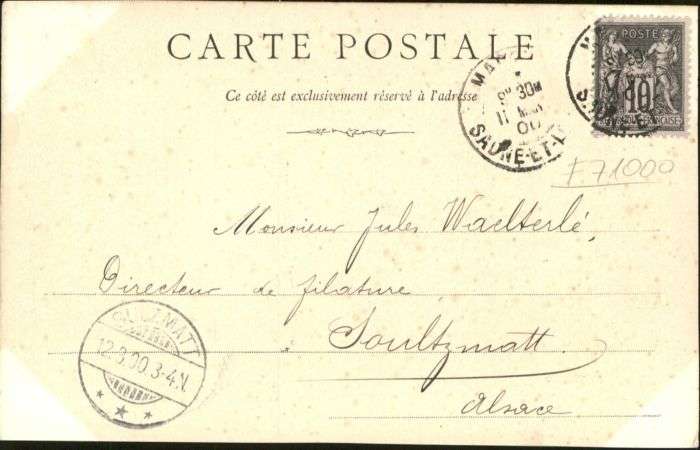 CARTE POSTALE
Ce côté est exclusivement réservé à l'adresse
POSTE
10
MA
9H 30M
11 MAR
00
SAONE-ET-L
F71000
Monsieur Jules Waelterlé,
Directeur de filature,
Soultzmatt.
Alsace
SULZMATT
12.3.00.3-4.N